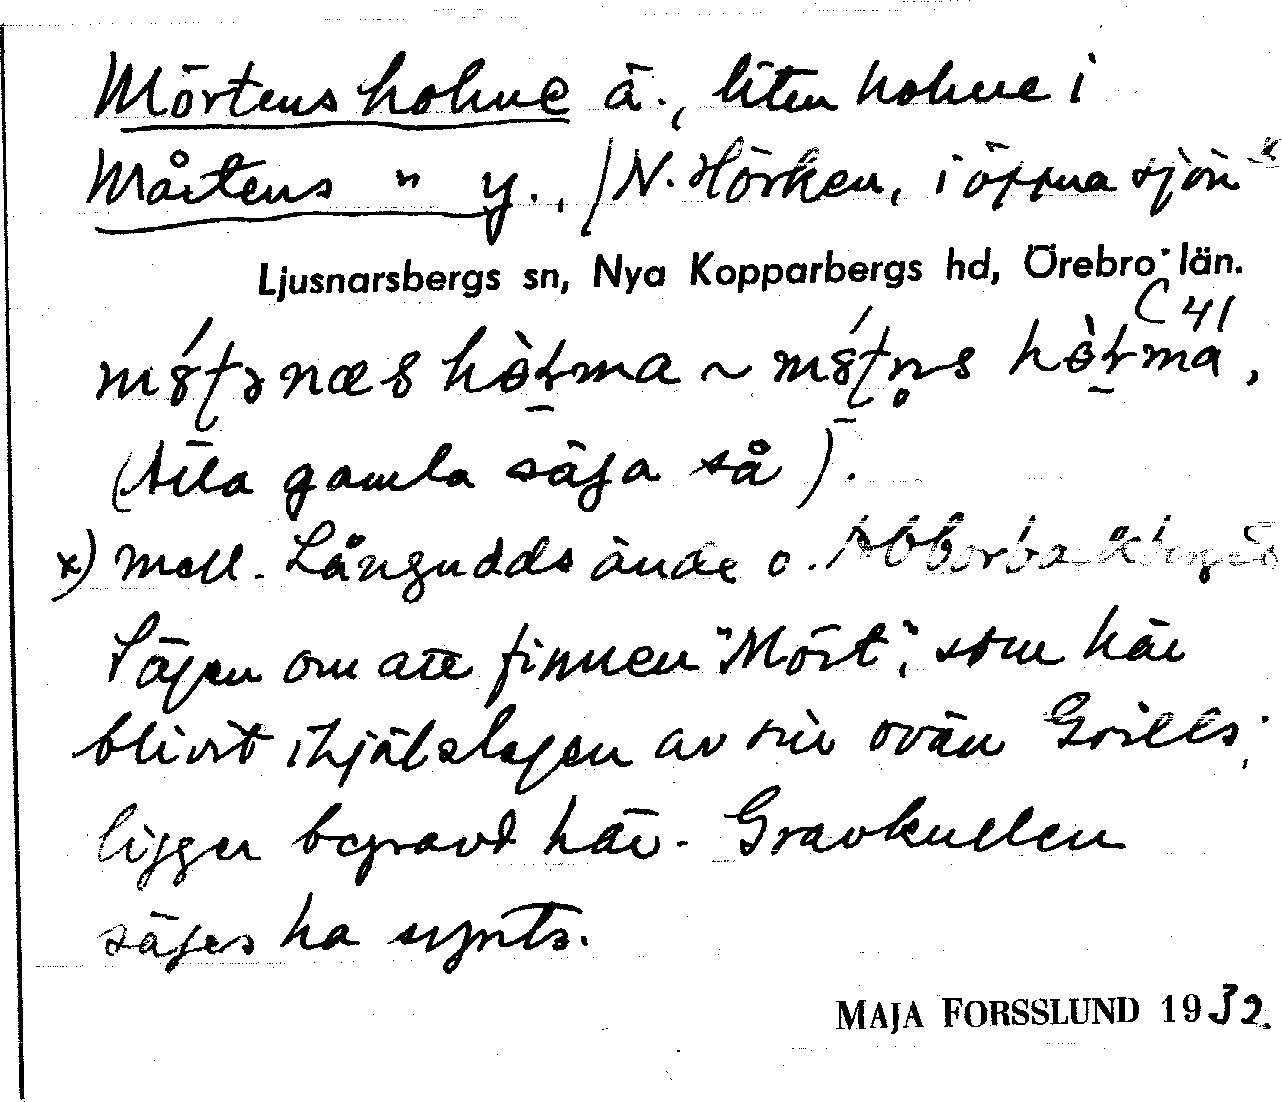 Mörtens holme ä., liten holme i
Mårtens " y., / N. Hörken, i öppna sjön x
Ljusnarsbergs sn, Nya Kopparbergs hd, Örebro län.
C 41
(Alla gamla säja så).
x) mell. Långudds ände o.
Sägen om att finnen "Mört", som här
blivit ihjälslagen av sin ovän Grills,
ligger begravd här. Gravkullen
säges ha synts.
MAJA FORSSLUND 1932.